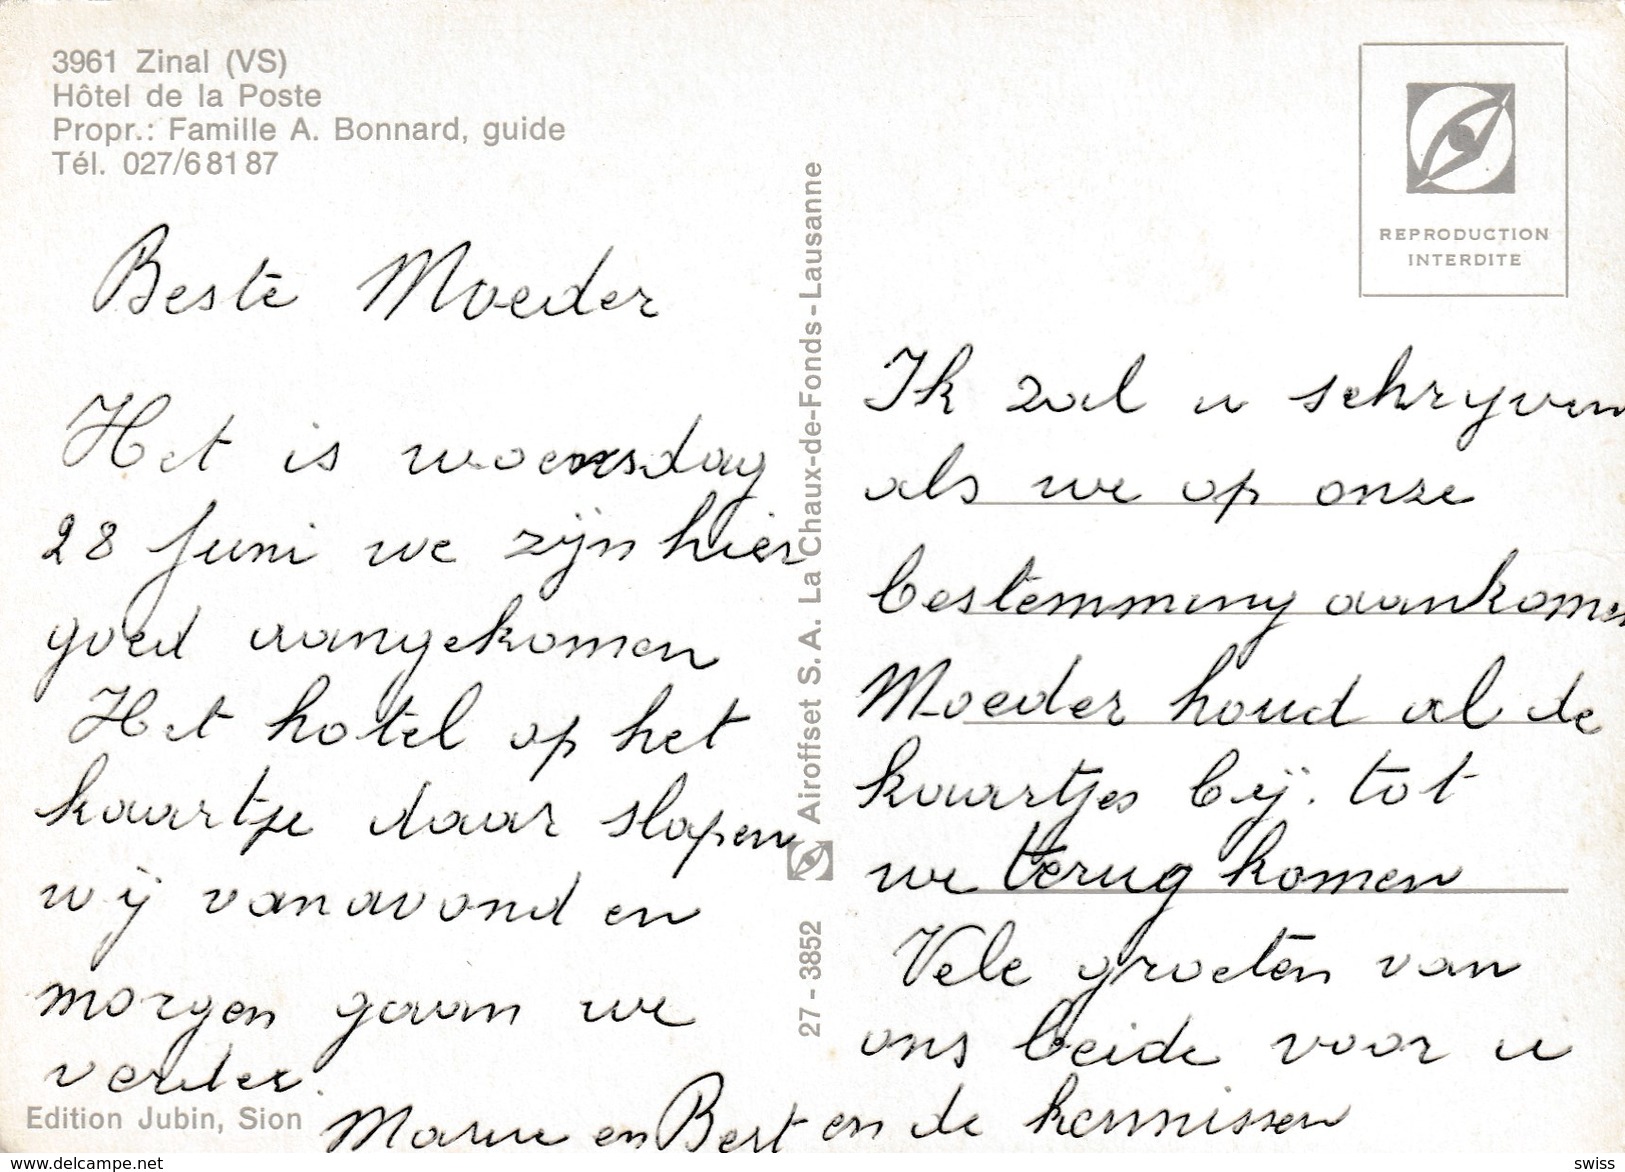 3961 Zinal (VS)
Hôtel de la Poste
Propr.: Famille A. Bonnard, guide
Tél. 027/6 81 87
REPRODUCTION
INTERDITE
Beste Moeder
Het is woensdag
28 Juni we zijn hier
goed aangekomen
Het hotel op het
kaartje daar slapen
wij vanavond en
morgen gaan we
verder.
Airoffset S.A. La Chaux-de-Fonds-Lausanne
27-3852
Ik zal u schryven
als we op onze
bestemming aankomen
Moeder houd al de
kaartjes bij. tot
we terug komen
Vele groeten van
ons beide voor u
en de kennissen
en Bert
Edition Jubin, Sion
www.delcampe.net
swiss